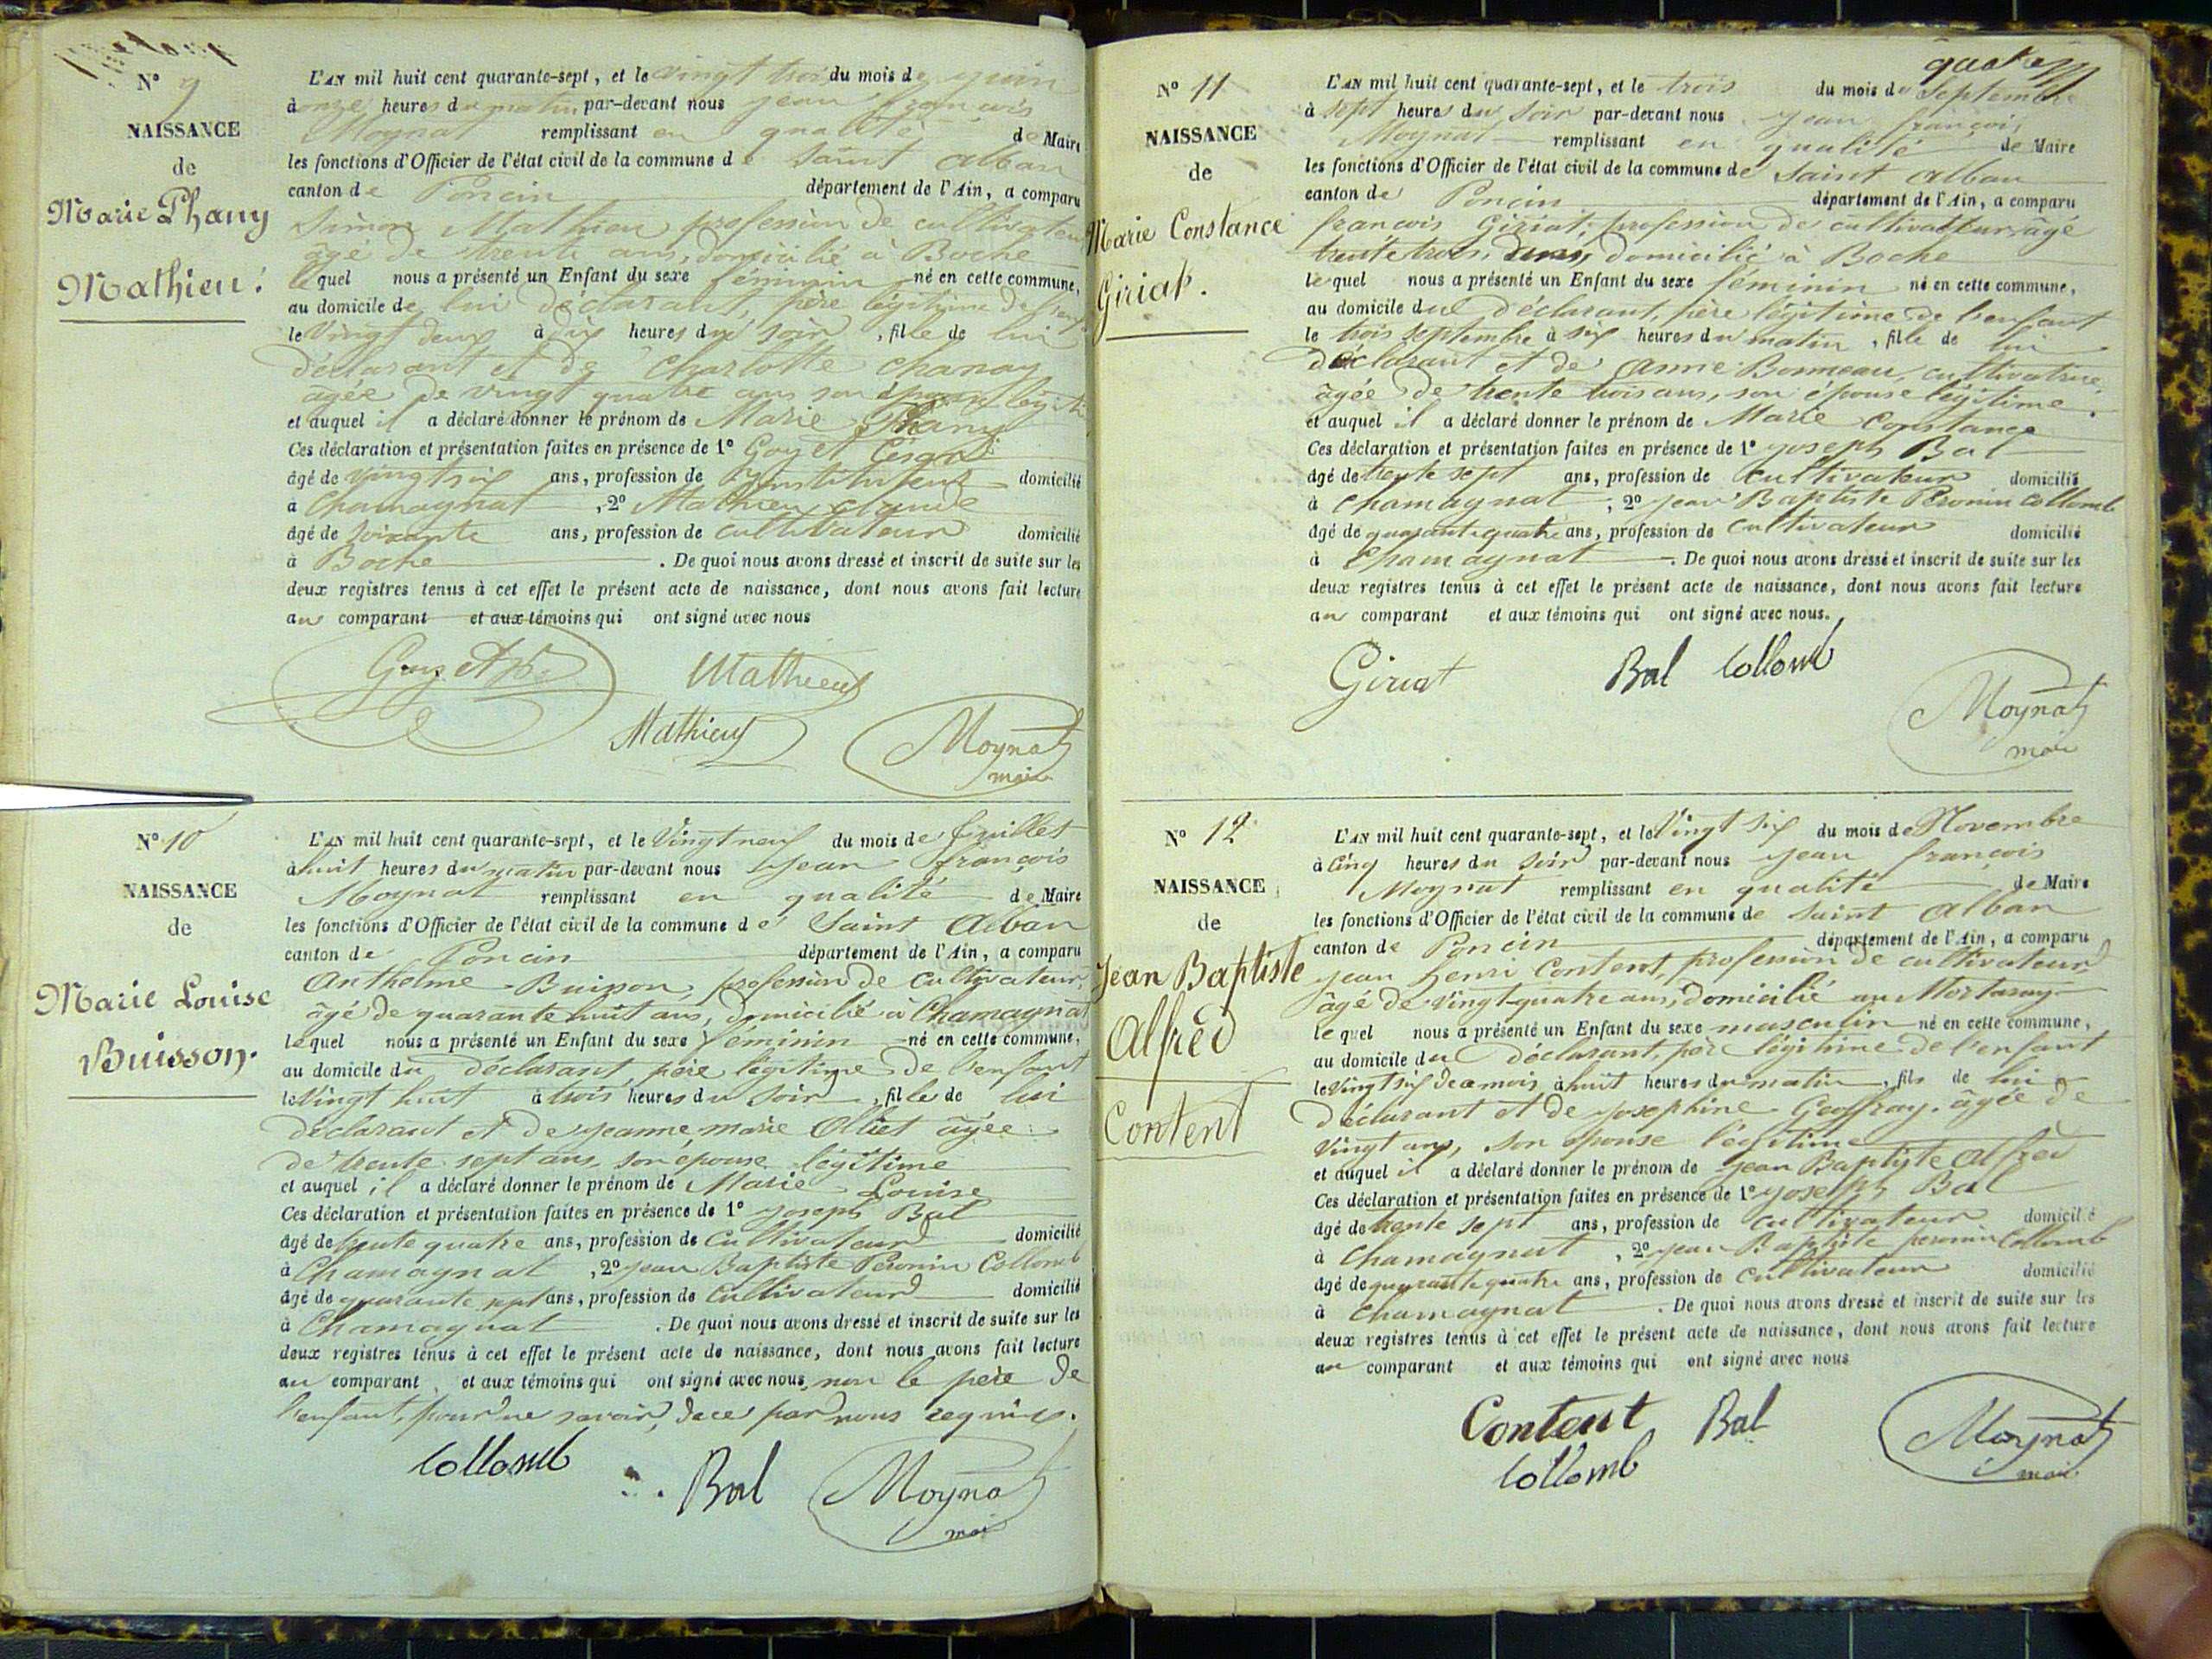 N° 9
NAISSANCE
de
Marie Phany
Mathieu.
L'AN mil huit cent quarante-sept, et le vingt trois du mois de juin
à onze heures du matin par-devant nous jean françois
Moynat remplissant en qualité de Maire
les fonctions d'Officier de l'état civil de la commune de Saint Alban
canton de Poncin département de l'Ain, a comparu
Simon Mathieu profession de cultivateur
âgé de trente ans, domicilié à Boche
lequel nous a présenté un Enfant du sexe féminin né en cette commune,
au domicile de lui déclarant, père légitime de
le vingt deux à dix heures du soir, fille de lui
déclarant et de Charlotte Chanay
âgée de vingt quatre ans son épouse
et auquel il a déclaré donner le prénom de Marie Phany
Ces déclaration et présentation faites en présence de 1° Goyet César
âgé de vingt six ans, profession de Instituteur domicilié
à Chamagnat, 2° Mathieu claude
âgé de soixante ans, profession de cultivateur domicilié
à Boche. De quoi nous avons dressé et inscrit de suite sur les
deux registres tenus à cet effet le présent acte de naissance, dont nous avons fait lecture
au comparant et aux témoins qui ont signé avec nous
Mathieu
Mathieu Moynat
maire
N° 10
NAISSANCE
de
Marie Louise
Buisson.
L'AN mil huit cent quarante-sept, et le vingt neuf du mois de juillet
à huit heures du matin par-devant nous jean françois
Moynat remplissant en qualité de Maire
les fonctions d'Officier de l'état civil de la commune de Saint Alban
canton de Poncin département de l'Ain, a comparu
Anthelme Buisson, profession de cultivateur,
âgé de quarante huit ans, domicilié à Chamagnat
lequel nous a présenté un Enfant du sexe féminin né en cette commune,
au domicile du déclarant, père légitime de l'enfant
le vingt huit à trois heures du soir, fille de lui
déclarant et de jeanne marie Olliet âgée
de trente sept ans, son épouse légitime
et auquel il a déclaré donner le prénom de Marie Louise
Ces déclaration et présentation faites en présence de 1° joseph Bal
âgé de trente quatre ans, profession de cultivateur domicilié
à Chamagnat, 2° jean Baptiste Peronin Collomb
âgé de quarante sept ans, profession de cultivateur domicilié
à Chamagnat. De quoi nous avons dressé et inscrit de suite sur les
deux registres tenus à cet effet le présent acte de naissance, dont nous avons fait lecture
au comparant et aux témoins qui ont signé avec nous, non le père de
l'enfant, pour ne savoir, de ce par nous requis.
Collomb
Bal Moynat
maire
quatre
N° 11
NAISSANCE
de
Marie Constance
Giriat.
L'AN mil huit cent quarante-sept, et le trois du mois de Septembre
à sept heures du soir par-devant nous jean françois
Moynat remplissant en qualité de Maire
les fonctions d'Officier de l'état civil de la commune de Saint Alban
canton de Poncin département de l'Ain, a comparu
françois Giriat, profession de cultivatteur, âgé
trente trois, ans, domicilié à Boche
lequel nous a présenté un Enfant du sexe féminin né en cette commune,
au domicile du déclarant, père légitime de l'enfant
le trois septembre à six heures du matin, fille de lui
déclarant et de Anne Bonneau, cultivatrice,
âgée de trente trois ans, son épouse légitime.
et auquel il a déclaré donner le prénom de Marie Constance
Ces déclaration et présentation faites en présence de 1° joseph Bal
âgé de trente sept ans, profession de cultivateur domicilié
à Chamagnat, 2° jean Baptiste Peronin Collomb
âgé de quarante quatre ans, profession de cultivateur domicilié
à Chamagnat. De quoi nous avons dressé et inscrit de suite sur les
deux registres tenus à cet effet le présent acte de naissance, dont nous avons fait lecture
au comparant et aux témoins qui ont signé avec nous.
Giriat Bal Collomb
Moynat
maire
N° 12
NAISSANCE
de
Jean Baptiste
Alfred
Content
L'AN mil huit cent quarante-sept, et le vingt six du mois de Novembre
à cinq heures du soir par-devant nous jean françois
Moynat remplissant en qualité de Maire
les fonctions d'Officier de l'état civil de la commune de Saint Alban
canton de Poncin département de l'Ain, a comparu
jean henri Content, profession de cultivateur
âgé de vingt-quatre ans, domicilié au Mortaray
lequel nous a présenté un Enfant du sexe masculin né en cette commune,
au domicile du déclarant, père légitime de l'enfant
le vingt six de ce mois à huit heures du matin, fils de lui
déclarant et de josephine Geoffray, âgée de
vingt ans, son épouse légitime
et auquel il a déclaré donner le prénom de jean Baptiste Alfred
Ces déclaration et présentation faites en présence de 1° joseph Bal
âgé de trente sept ans, profession de cultivateur domicilié
à Chamagnat, 2° jean Baptiste peronin Collomb
âgé de quarante quatre ans, profession de cultivateur domicilié
à Chamagnat. De quoi nous avons dressé et inscrit de suite sur les
deux registres tenus à cet effet le présent acte de naissance, dont nous avons fait lecture
au comparant et aux témoins qui ont signé avec nous
Content Bal Moynat
Collomb maire